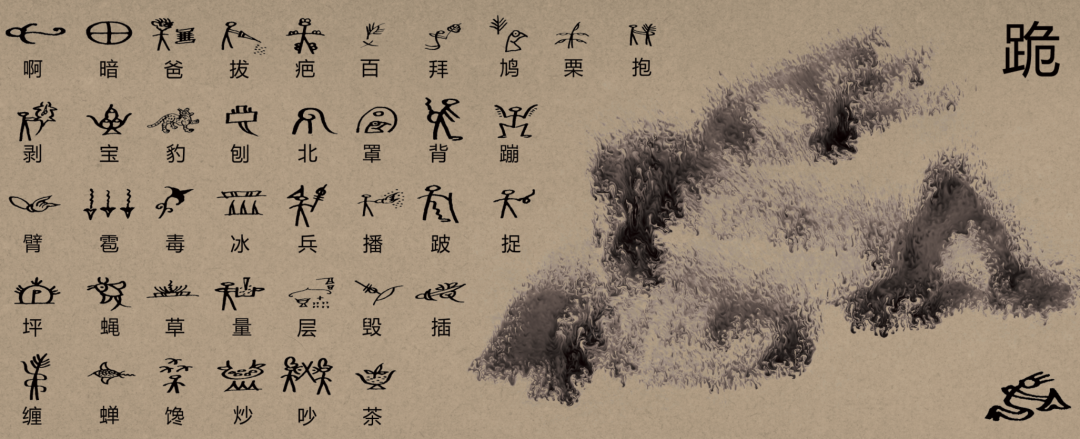 啊 暗 爸 拔 疤 百 拜 鸠 栗 抱
剥 宝 豹 刨 北 罩 背 蹦
臂 雹 毒 冰 兵 播 跛 捉
坪 蝇 草 量 层 毁 插
缠 蝉 馋 炒 吵 茶
跪